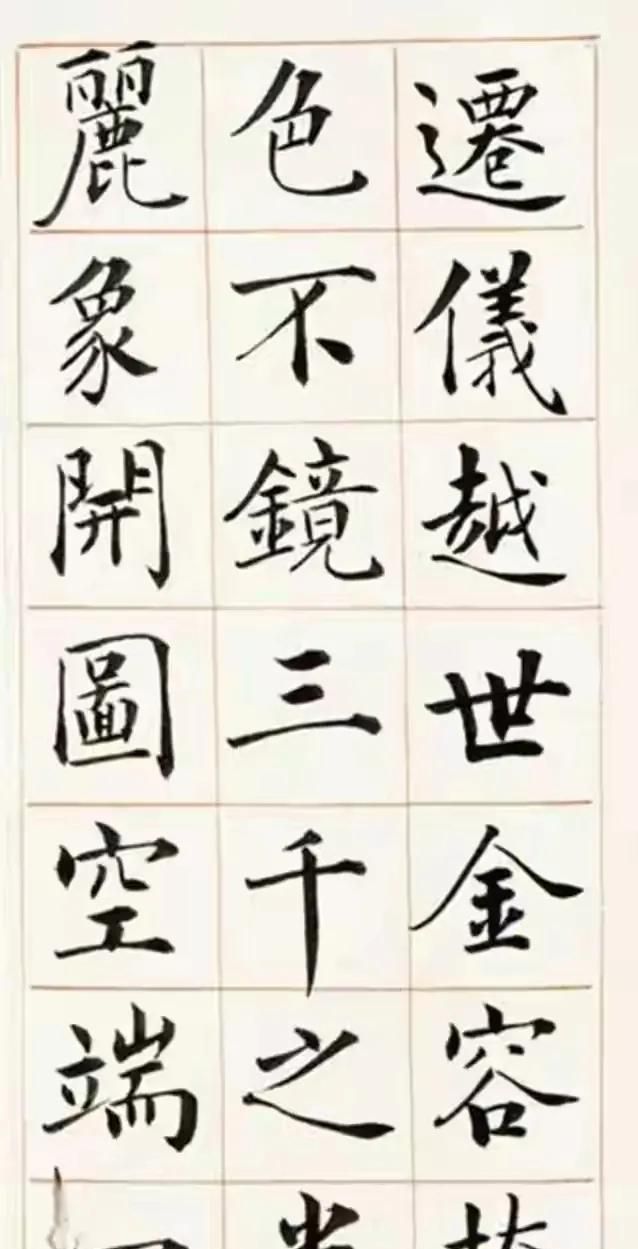 遷儀越世金容
色不鏡三千之
麗象開圖空端